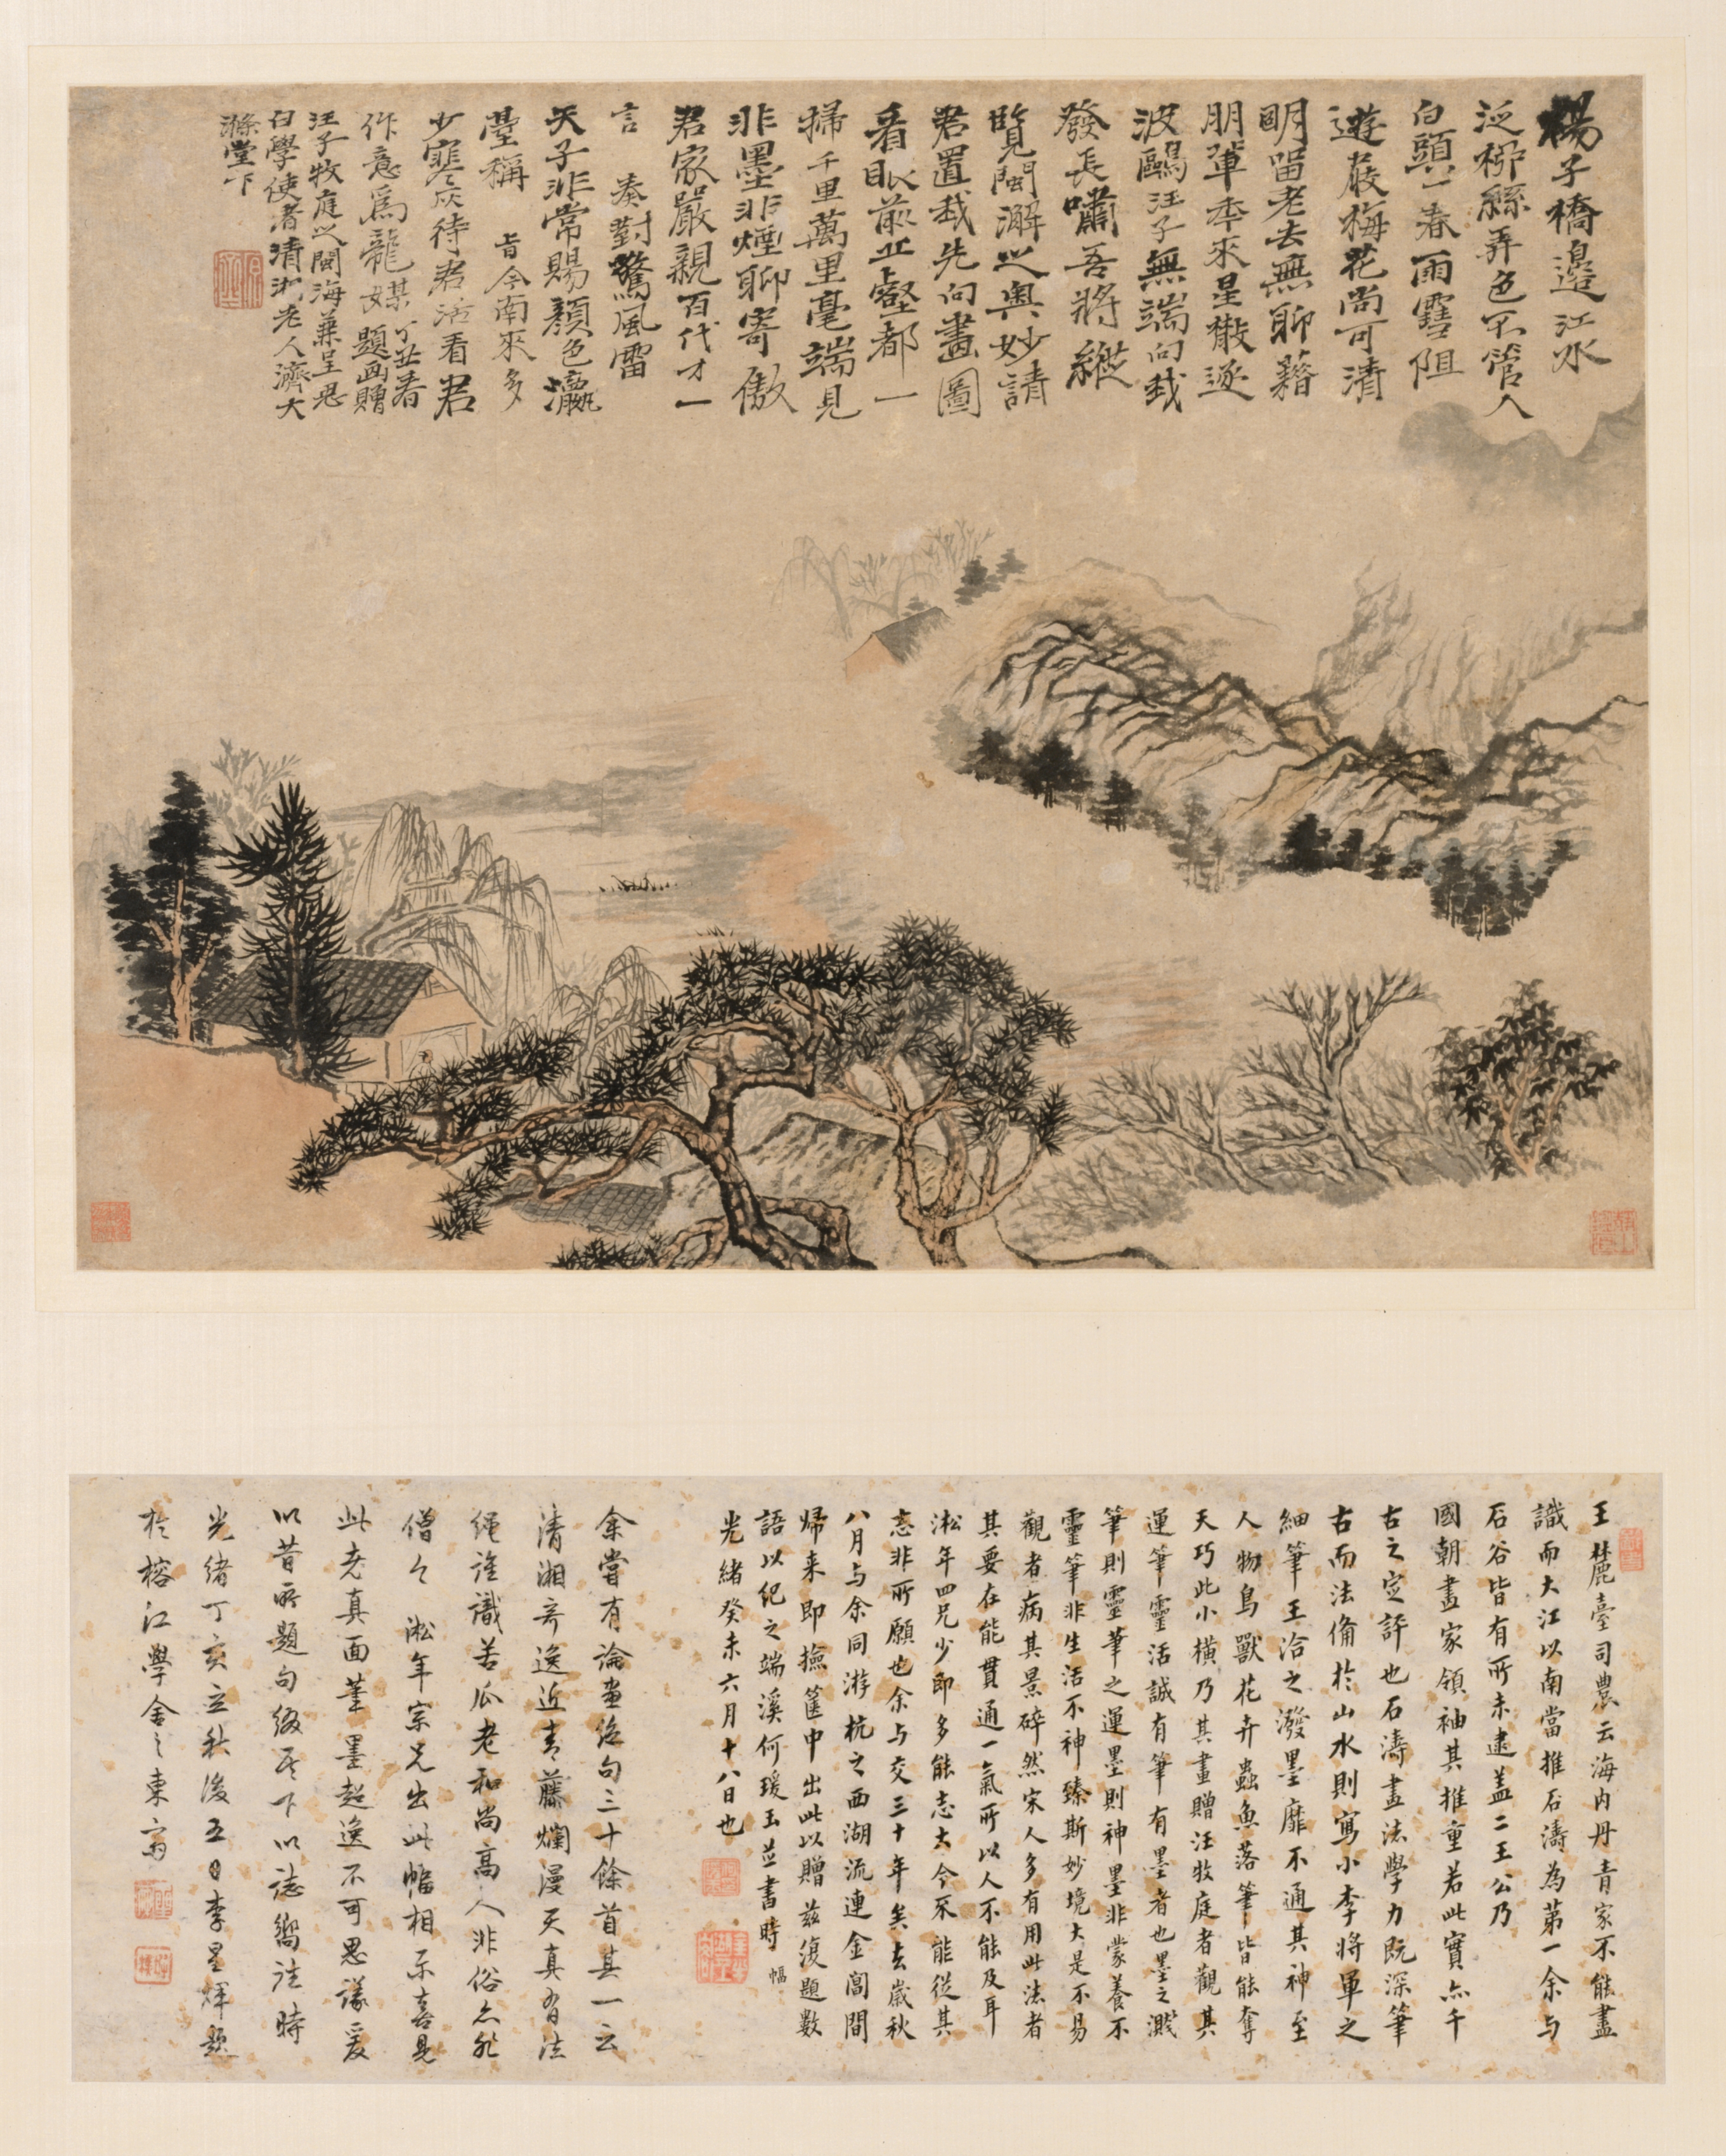 楊子橋邊江水
泛柳絲弄色不管人
白頭一春雨雪阻
遊展梅花尚可清
明留老去無聊藉
朋輩年來星散逐
波鷗汪子無端向我
發長嘯吾將縱
覽閩澥之奧妙請
君置我先向畫圖
看眼前丘壑都一
掃千里萬里毫端見
非墨非煙聊寄傲
君家嚴親百代才一
言　奏對驚風雷
天子非常賜顏色瀛
臺稱　旨今南來多
少寒灰待君活看君
作意為龍媒　丁丑春題畫贈
汪子牧庭之閩海兼呈思
白學使者清湘老人濟大
滌堂下
王麓臺司農云海內丹青家不能盡
識而大江以南當推石濤為第一余與
石谷皆有所未逮蓋二王公乃
國朝畫家領袖其推重若此實亦千
古之定評也石濤畫法學力既深筆
古而法備於山水則寫小李將軍之
細筆王洽之潑墨靡不通其神至
人物鳥獸花卉蟲魚落筆皆能奪
天巧此小橫乃其畫贈汪牧庭者觀其
運筆靈活誠有筆有墨者也墨之濺
筆則靈筆之運墨則神墨非蒙養不
靈筆非生活不神臻斯妙境大是不易
觀者病其景碎然宋人多有用此法者
其要在能貫通一氣所以人不能及耳
淞年四兄少即多能志大今不能從其
志非所願也余與交三十年矣去歲秋
八月與余同游杭之西湖流連金閶間
歸來即撿篋中出此以贈茲復題數
語以紀之端溪何瑗玉並書時　幅
光緒癸未六月十八日也
余嘗有論畫絕句三十餘首其一云
清湘奇逸近青藤爛漫天真有法
繩誰識苦瓜老和尚高人非俗亦非
僧今　淞年宗兄出此幅相示喜見
此老真面筆墨超逸不可思議爰
以昔所題句綴于下以誌嚮往時
光緒丁亥立秋後五日李星煇題
於榕江學舍之東齋